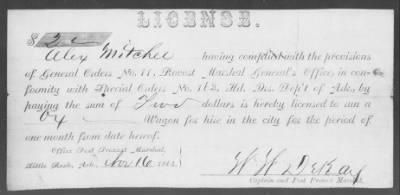 LICENSE.
$ 2
Alex Mitchel having complied with the provisions
of General Orders No. 11, Provost Marshal General's Office, in con-
formity with Special Orders No. 162, Hd. Qrs. Dep't of Arks, by
paying the sum of Two dollars is hereby licensed to run a
Ox Wagon for hire in the city for the period of
one month from date hereof.
Office Post Provost Marshal,
Little Rock, Ark. Nov 16 186
W. W. DeKay
Captain and Post Provost Marshal.